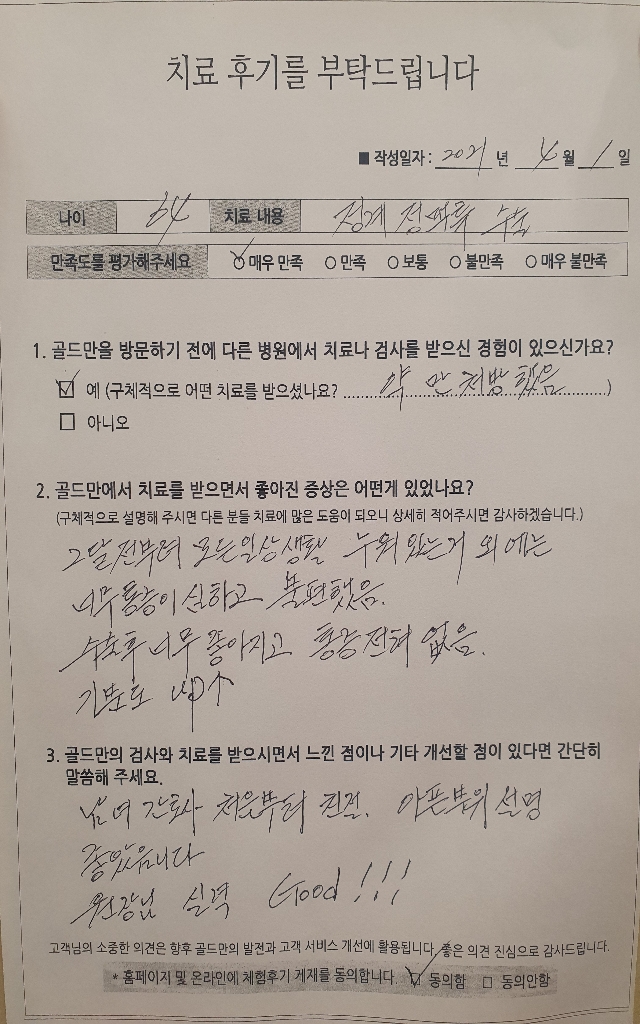 치료 후기를 부탁드립니다
■ 작성일자 : 2021 년 4 월 1 일
나이 64 치료 내용 정계 정맥류 수술
만족도를 평가해주세요 매우 만족 ○ 만족 ○ 보통 ○ 불만족 ○ 매우 불만족
1. 골드만을 방문하기 전에 다른 병원에서 치료나 검사를 받으신 경험이 있으신가요?
☑ 예 (구체적으로 어떤 치료를 받으셨나요? 약 만 처방 했음 )
□ 아니오
2. 골드만에서 치료를 받으면서 좋아진 증상은 어떤게 있었나요?
(구체적으로 설명해 주시면 다른 분들 치료에 많은 도움이 되오니 상세히 적어주시면 감사하겠습니다.)
2달전부터 모든일상생활 누워있는거 외에는
너무통증이 심하고 불편했음.
수술후 너무 좋아지고 통증전혀 없음.
기분도 up↑
3. 골드만의 검사와 치료를 받으시면서 느낀 점이나 기타 개선할 점이 있다면 간단히
말씀해 주세요.
남여 간호사 처음부터 친절. 아픈부위 설명
좋았읍니다
원장님 실력 Good !!!
고객님의 소중한 의견은 향후 골드만의 발전과 고객 서비스 개선에 활용됩니다. 좋은 의견 진심으로 감사드립니다.
* 홈페이지 및 온라인에 체험후기 게재를 동의합니다. ☑ 동의함 □ 동의안함